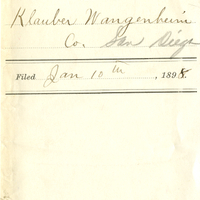 Klauber Wangenheim
Co. San Diego
Filed Jan 10th, 1898.